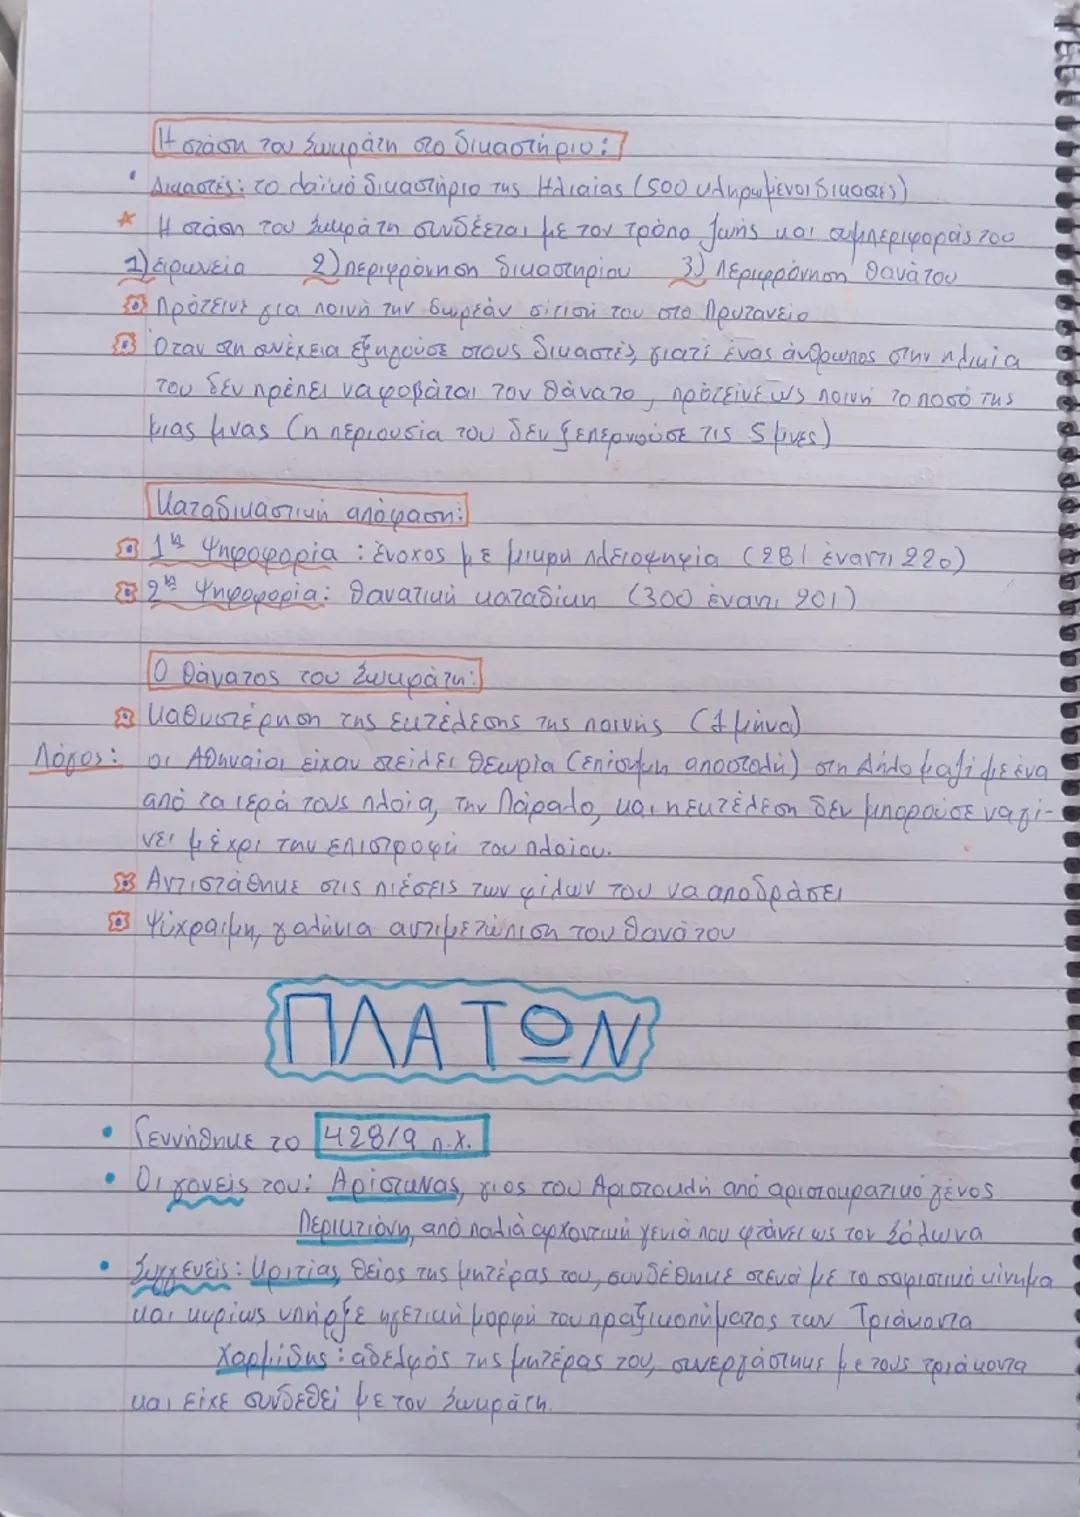 Η στάση του Σωκράτη στο δικαστήριο:
• Δικαστές: το λαϊκό δικαστήριο της Ηλιαίας (500 κληρωμένοι δικαστές)
* Η στάση του Σωκράτη συνδέεται με τον τρόπο ζωής και συμπεριφοράς του
1) ειρωνεία 2) περιφρόνηση δικαστηρίου 3) περιφρόνηση θανάτου
Πρότεινε για ποινή την δωρεάν σίτισή του στο Πρυτανείο
Όταν στη συνέχεια εξηγούσε στους δικαστές γιατί ένας άνθρωπος στην ηλικία
του δεν πρέπει να φοβάται τον θάνατο, πρότεινε ως ποινή το ποσό της
μιας μνας (η περιουσία του δεν ξεπερνούσε τις 5 μνες)
Καταδικαστική απόφαση:
1η Ψηφοφορία: ένοχος με μικρή πλειοψηφία (281 έναντι 220)
2η Ψηφοφορία: θανατική καταδίκη (300 έναντι 201)
Ο θάνατος του Σωκράτη:
Καθυστέρηση της εκτέλεσης της ποινής (1 μήνα)
Λόγος: οι Αθηναίοι είχαν στείλει θεωρία (επίσημη αποστολή) στη Δήλο μαζί με ένα
από τα ιερά τους πλοία, την Πάραλο, και η εκτέλεση δεν μπορούσε να γί-
νει μέχρι την επιστροφή του πλοίου.
Αντιστάθηκε στις πιέσεις των φίλων του να αποδράσει
Ψύχραιμη, γαλήνια αντιμετώπιση του θανάτου
ΠΛΑΤΩΝ
• Γεννήθηκε το 428/9 π.Χ.
• Οι γονείς του: Αρίστωνας, γιος του Αριστοκλή από αριστοκρατικό γένος
Περικτιόνη, από παλιά αρχοντική γενιά που φτάνει ως τον Σόλωνα
• Συγγενείς: Κριτίας, θείος της μητέρας του, συνδέθηκε στενά με το σοφιστικό κίνημα
και κυρίως υπήρξε ηγετική μορφή του πραξικοπήματος των Τριάκοντα
Χαρμίδης: αδελφός της μητέρας του, συνεργάστηκε με τους τριάκοντα
και είχε συνδεθεί με τον Σωκράτη.